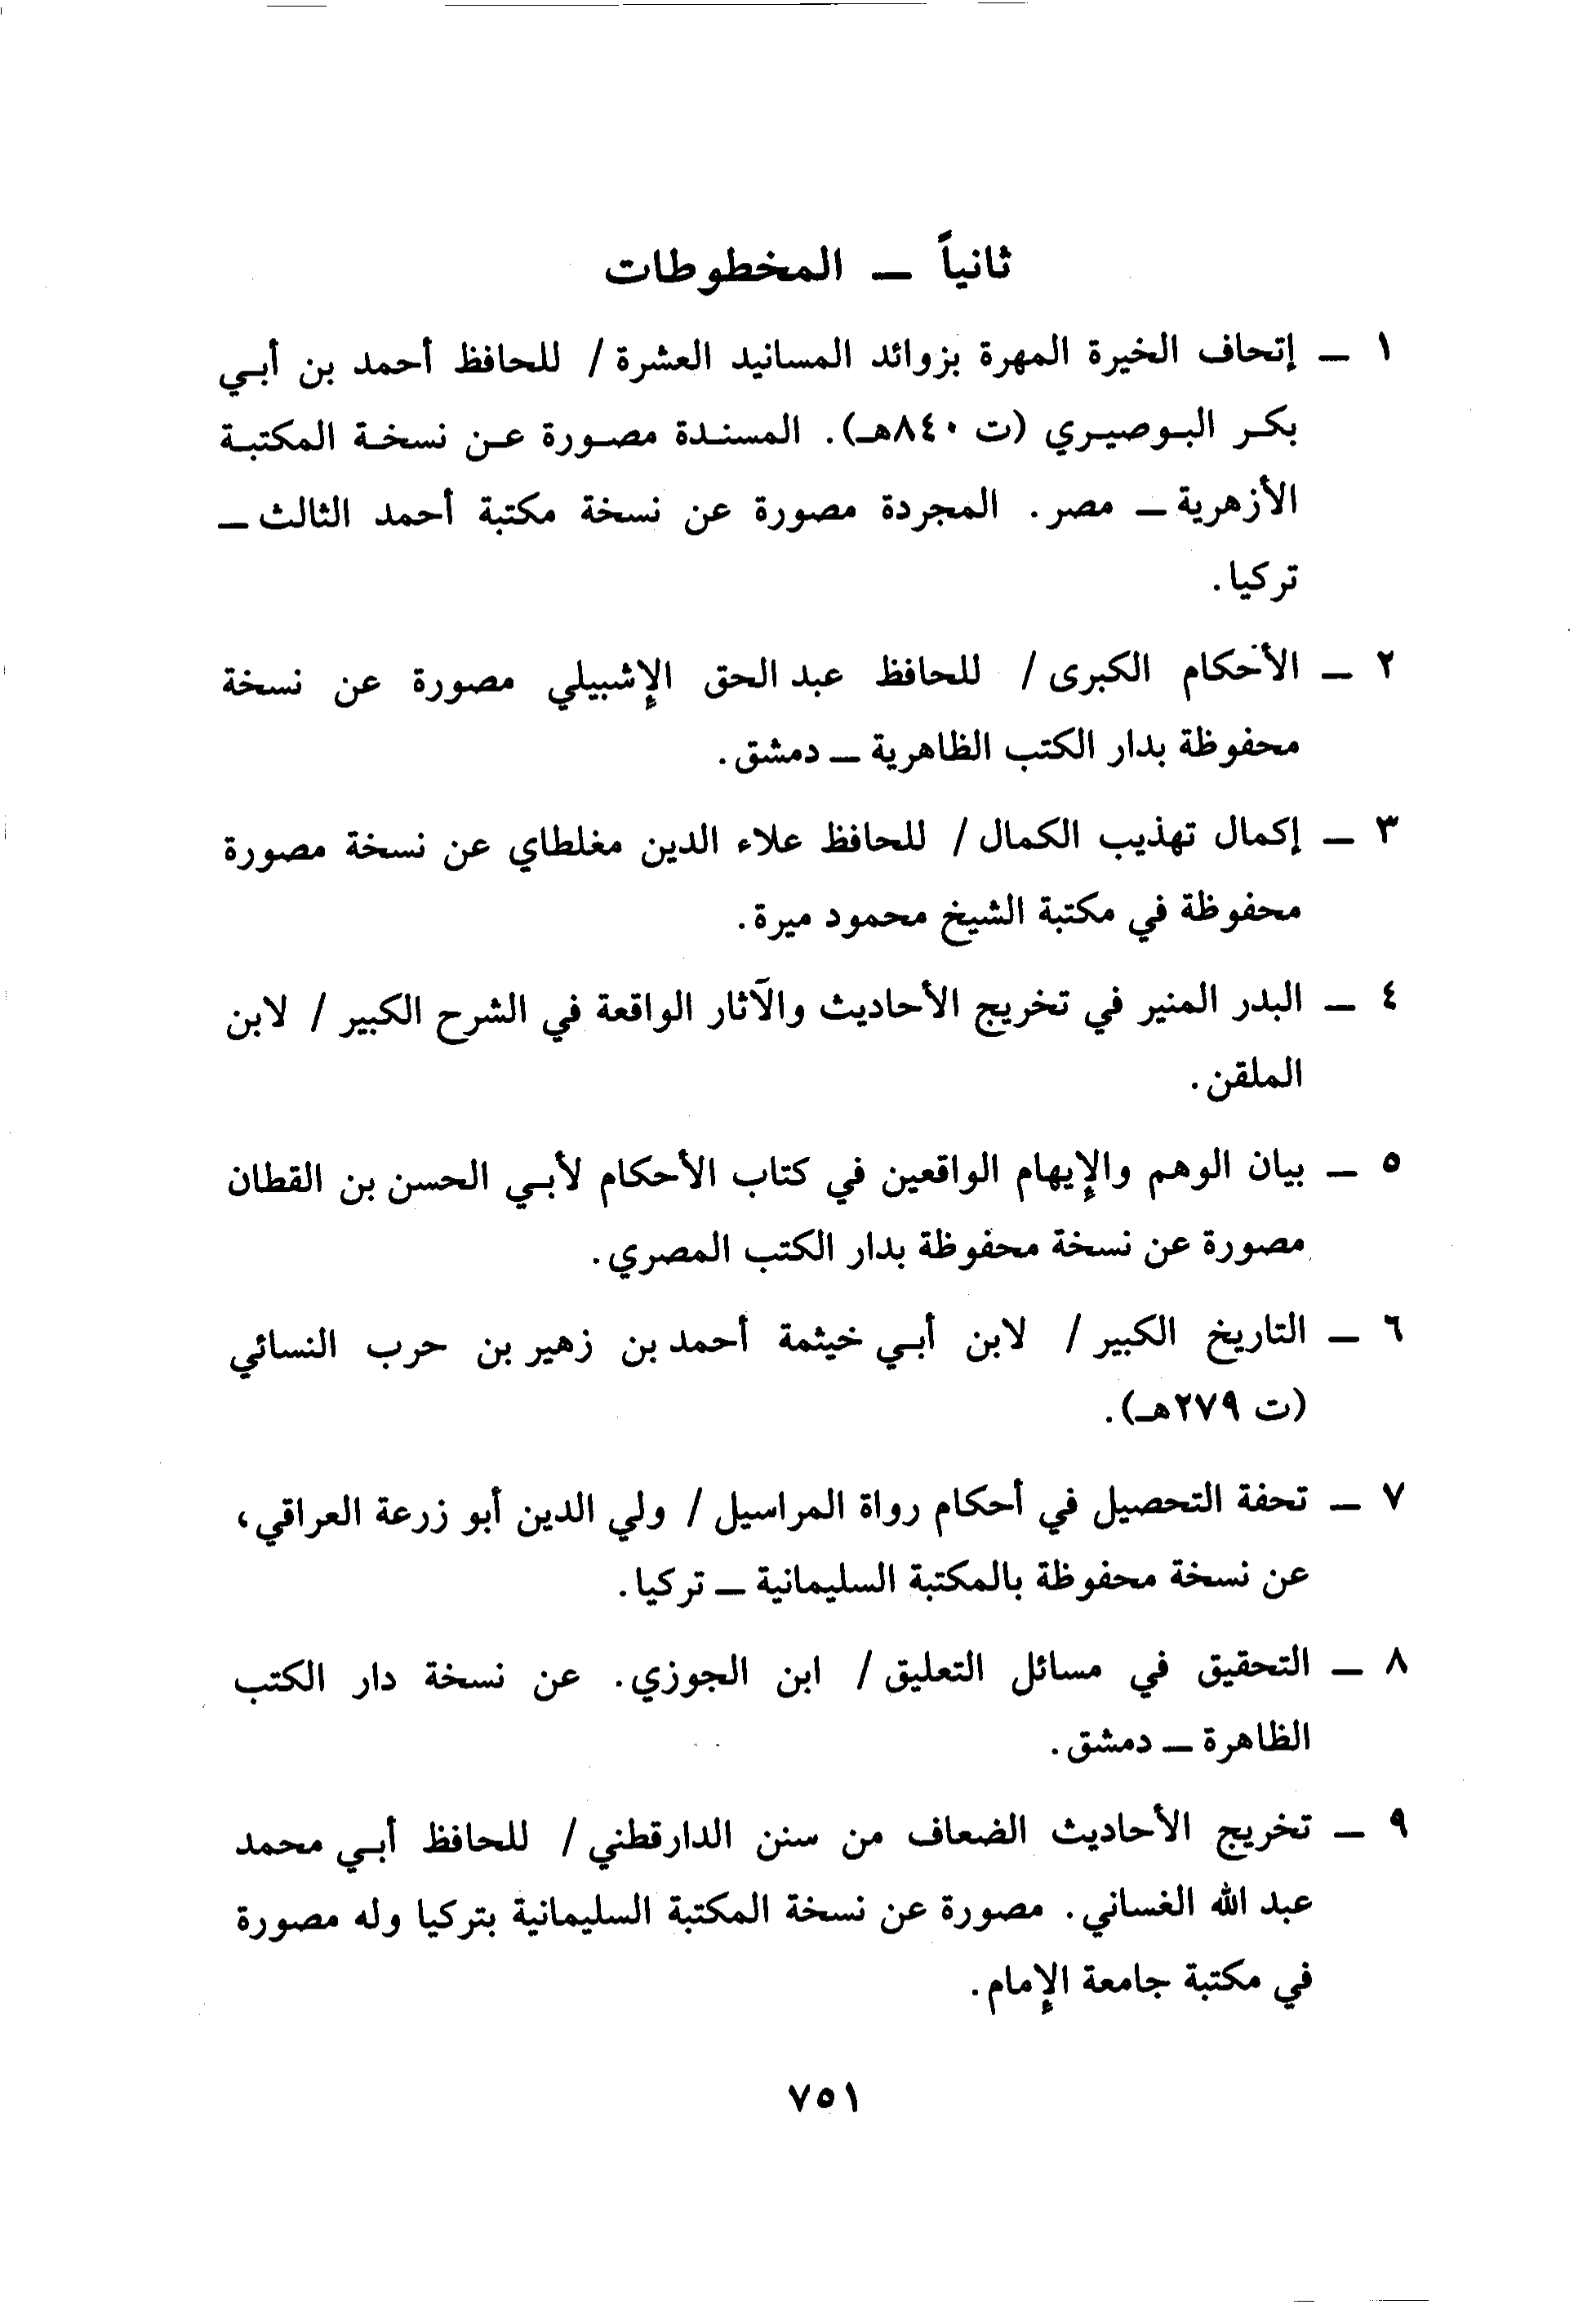 ثانياً ـ المخطوطات
١ ـ إتحاف الخيرة المهرة بزوائد المسانيد العشرة / للحافظ أحمد بن أبي
بكر البوصيري (ت ٨٤٠هـ). المسندة مصورة عن نسخة المكتبة
الأزهرية ـ مصر. المجردة مصورة عن نسخة مكتبة أحمد الثالث ـ
تركيا.
٢ ـ الأحكام الكبرى / للحافظ عبد الحق الإشبيلي مصورة عن نسخة
محفوظة بدار الكتب الظاهرية ـ دمشق.
٣ ـ إكمال تهذيب الكمال / للحافظ علاء الدين مغلطاي عن نسخة مصورة
محفوظة في مكتبة الشيخ محمود ميرة.
٤ ـ البدر المنير في تخريج الأحاديث والآثار الواقعة في الشرح الكبير / لابن
الملقن.
٥ ـ بيان الوهم والإيهام الواقعين في كتاب الأحكام لأبي الحسن بن القطان
مصورة عن نسخة محفوظة بدار الكتب المصري.
٦ ـ التاريخ الكبير / لابن أبي خيثمة أحمد بن زهير بن حرب النسائي
(ت ٢٧٩هـ).
٧ ـ تحفة التحصيل في أحكام رواة المراسيل / ولي الدين أبو زرعة العراقي،
عن نسخة محفوظة بالمكتبة السليمانية ـ تركيا.
٨ ـ التحقيق في مسائل التعليق / ابن الجوزي. عن نسخة دار الكتب
الظاهرة ـ دمشق.
٩ ـ تخريج الأحاديث الضعاف من سنن الدارقطني / للحافظ أبي محمد
عبد الله الغساني. مصورة عن نسخة المكتبة السليمانية بتركيا وله مصورة
في مكتبة جامعة الإمام.
٧٥١